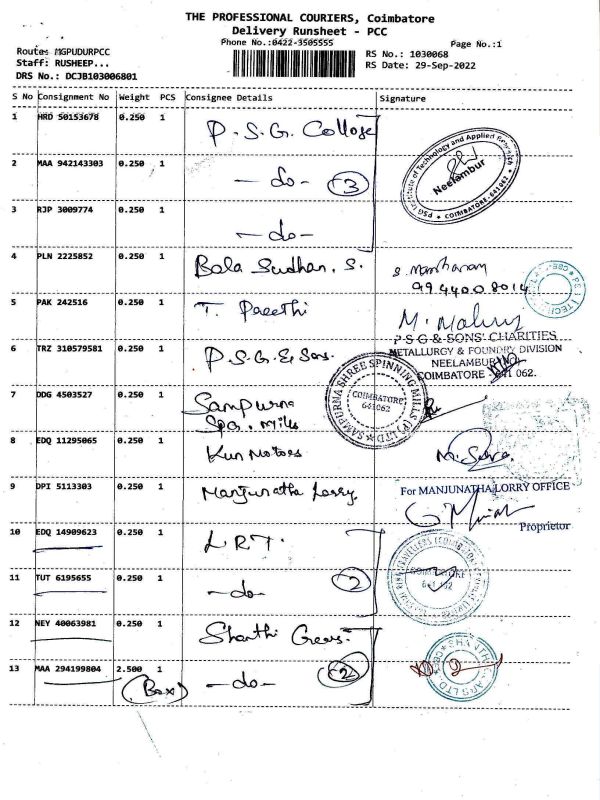 THE PROFESSIONAL COURIERS, Coimbatore
Delivery Runsheet - PCC
Phone No.:0422-3505555
Page No.:1
Route: MGPUDURPCC
Staff: RUSHEEP...
DRS No.: DCJB103006801
RS No.: 1030068
RS Date: 29-Sep-2022
S No Consignment No Weight PCS Consignee Details Signature
1 HRD 50153678 0.250 1 P.S.G. College
PSG Institute of Technology and Applied Research
Neelambur
COIMBATORE-641062
2 MAA 942143303 0.250 1 -do- 3
3 RJP 3009774 0.250 1 -do-
4 PLN 2225852 0.250 1 Bala Sudhan. S.
9944008014
5 PAK 242516 0.250 1 T. Preethi
PSG & SONS' CHARITIES
METALLURGY & FOUNDRY DIVISION
NEELAMBUR
COIMBATORE 641 062.
6 TRZ 310579581 0.250 1 P.S.G. & Sons.
SAMPURNA SHREE SPINNING MILLS (P) LTD
COIMBATORE
641062
7 DDG 4503527 0.250 1 Sampurna
Spg. Mills
8 EDQ 11295065 0.250 1 Kun Motors
9 DPI 5113303 0.250 1 Manjunatha Lorry.
For MANJUNATHA LORRY OFFICE
Proprietor
10 EDQ 14909623 0.250 1 L.R.T.
11 TUT 6195655 0.250 1 -do- 2
12 NEY 40063981 0.250 1 Shanthi Gears.
13 MAA 294199804 2.500 1 -do- 2
(Box)